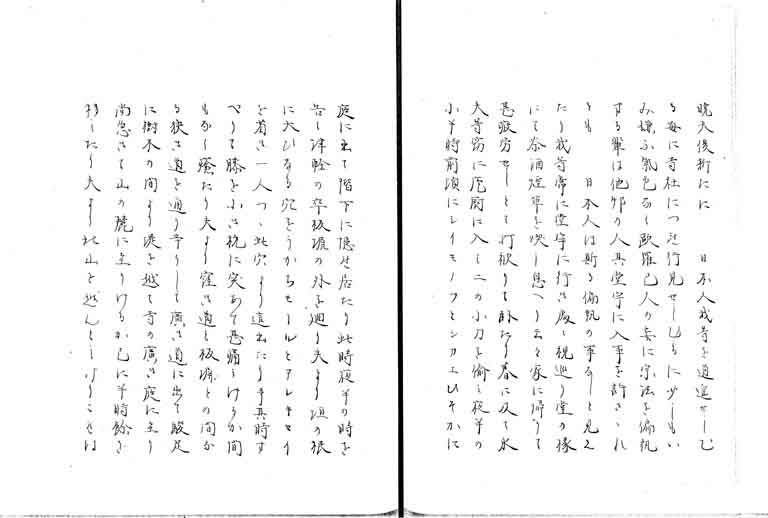 暁天後折々に　日本人我等を逍遥せしむ
る毎に寺社につれ行見せしむるに少しもい
み嫌ふ氣色なし歐羅巴人の妄に宗法を偏執
する輩は他邦の人其堂宇に入事を許されれ
とも　日本人は斯る偏執の事なしと見え
たり我等常に堂宇に行き處々視巡り堂の椽
にて茶酒煙草を喫し息へり云々家に帰りて
甚疲労せしとて打臥りて臥たり春に及て水
夫等窃に庖厨に入て二の小刀を偸み夜半の
小半時前頃にレイモノフとシカエひそかに
庭に出て階下に隠せ居たり此時夜半の時を
告し津輕の卒板塀の外を廻り夫より垣の根
に大ひなる穴をうかちセールとアレキセイ
を着き一人つゝ此穴より這出たり予其時す
へりて膝を小き杭に突あて甚痛しけるか間
もなく癒たり夫より窪き道と板塀との間か
る狭き道を通り予りして廣き道に出て駿足
に樹木の間より渡を越て寺の廣き庭に至り
尚急きて山の麓に至りけるか已に半時餘を
移したり夫より北山を越んとしけりこゝは